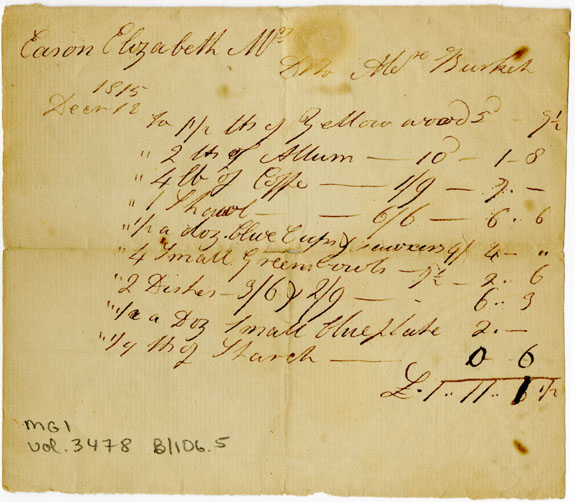 Eason Elizabeth Mrs
Dr to Alexr Burket
1815
Decr 12
To 1 1/2 lb of Yellow wood 5d — 7 1/2
" 2 lb of Allum — 10d — 1 - 8
" 4 lb of Coffe — 1/9 — 7 . —
" 1 Shawl — 6/6 — 6 . 6
" 1/2 a doz. blue Cups & sawcers 8/ 4 — "
" 4 Small Green bowls — 7 1/2 — 2 . 6
" 2 Dishes — 3/6 & 2/9 — . 6 . 3
" 1/2 a Doz Small blue plate 2 . —
" 1/4 lb of Starch — 0 6
£ . 1 .. 11 .. 1 1/2
MG1
vol. 3478 B/106.5